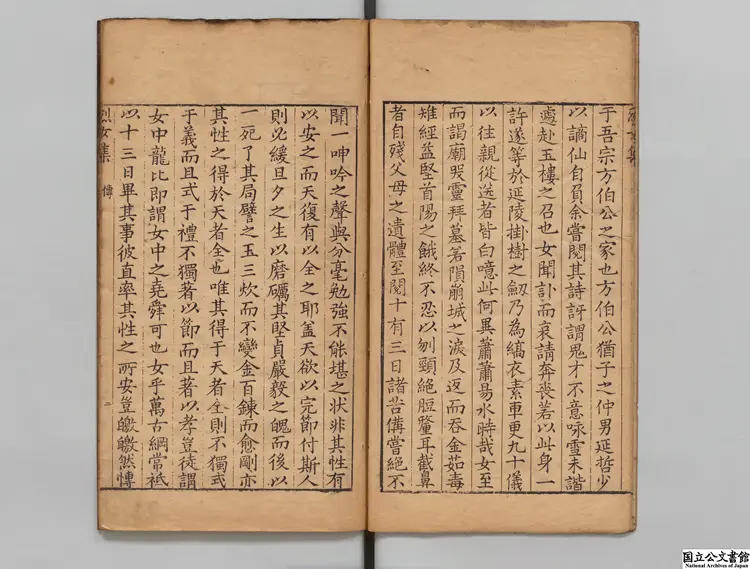 于吾宗方伯公之家也方伯公猶子之仲男延哲少
以謫仙自負余嘗閱其詩訝謂鬼才不意咏雪未諧
遽赴玉樓之召也女聞訃而哀請奔喪若以此身一
許遂等於延陵掛樹之劒乃為縞衣素車更九十儀
以往親從送者皆白噫此何異蕭蕭易水時哉女至
而謁廟哭靈拜墓若隕崩城之淚及返而吞金茹毒
雉經益堅首陽之餓終不忍以刎頸絕脰鑿耳截鼻
者自殘父母之遺體至閱十有三日諸苦備嘗絕不
聞一呻吟之聲與分毫勉強不能堪之狀非其性有
以安之而天復有以全之耶蓋天欲以完節付斯人
則必緩旦夕之生以磨礪其堅貞嚴毅之魄而後以
一死了其局譬之玉三炊而不變金百鍊而愈剛亦
其性之得於天者全也唯其得于天者全則不獨式
于義而且式于禮不獨著以節而且著以孝豈徒謂
女中龍比即謂女中之堯舜可也女乎萬古綱常祗
以十三日畢其事彼直率其性之所安豈皦皦然慱
烈女集
傳
二
国立公文書館
National Archives of Japan